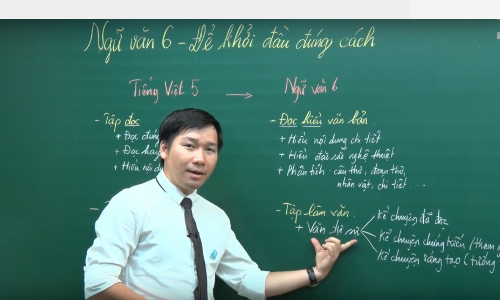 Ngữ văn 6 - Để khởi đầu đúng cách
Tiếng Việt 5 → Ngữ văn 6
- Tập đọc
+ Đọc đúng
+ Đọc hay
+ Hiểu nội
- Đọc hiểu văn bản
+ Hiểu nội dung chi tiết
+ Hiểu đặc sắc nghệ thuật
+ Phân tích: câu thơ, đoạn thơ,
nhân vật, chi tiết ...
- Tập làm văn.
+ Văn tự sự
kể chuyện đã đọc
kể chuyện chứng kiến / tham
kể chuyện sáng tạo ( tưởng